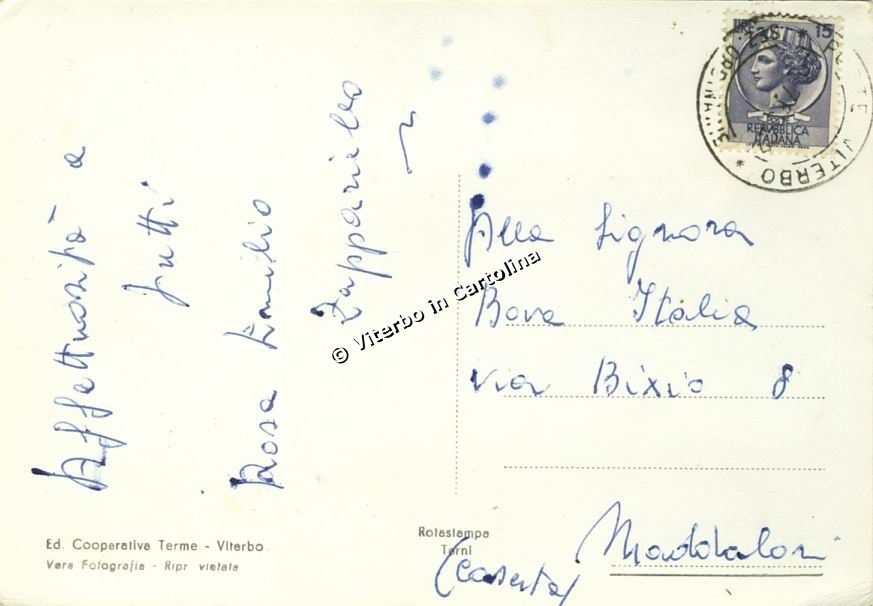 Affettuosità a
tutti
Rosa Emilio
Zappariello
Alla Signora
Bova Italia
via Bixio 8
Maddaloni
(Caserta)
Ed. Cooperativa Terme - Viterbo
Vera Fotografia - Ripr vietata
Rotastampa
Terni
© Viterbo in Cartolina
15
POSTE
REPVBBLICA
ITALIANA
VITERBO